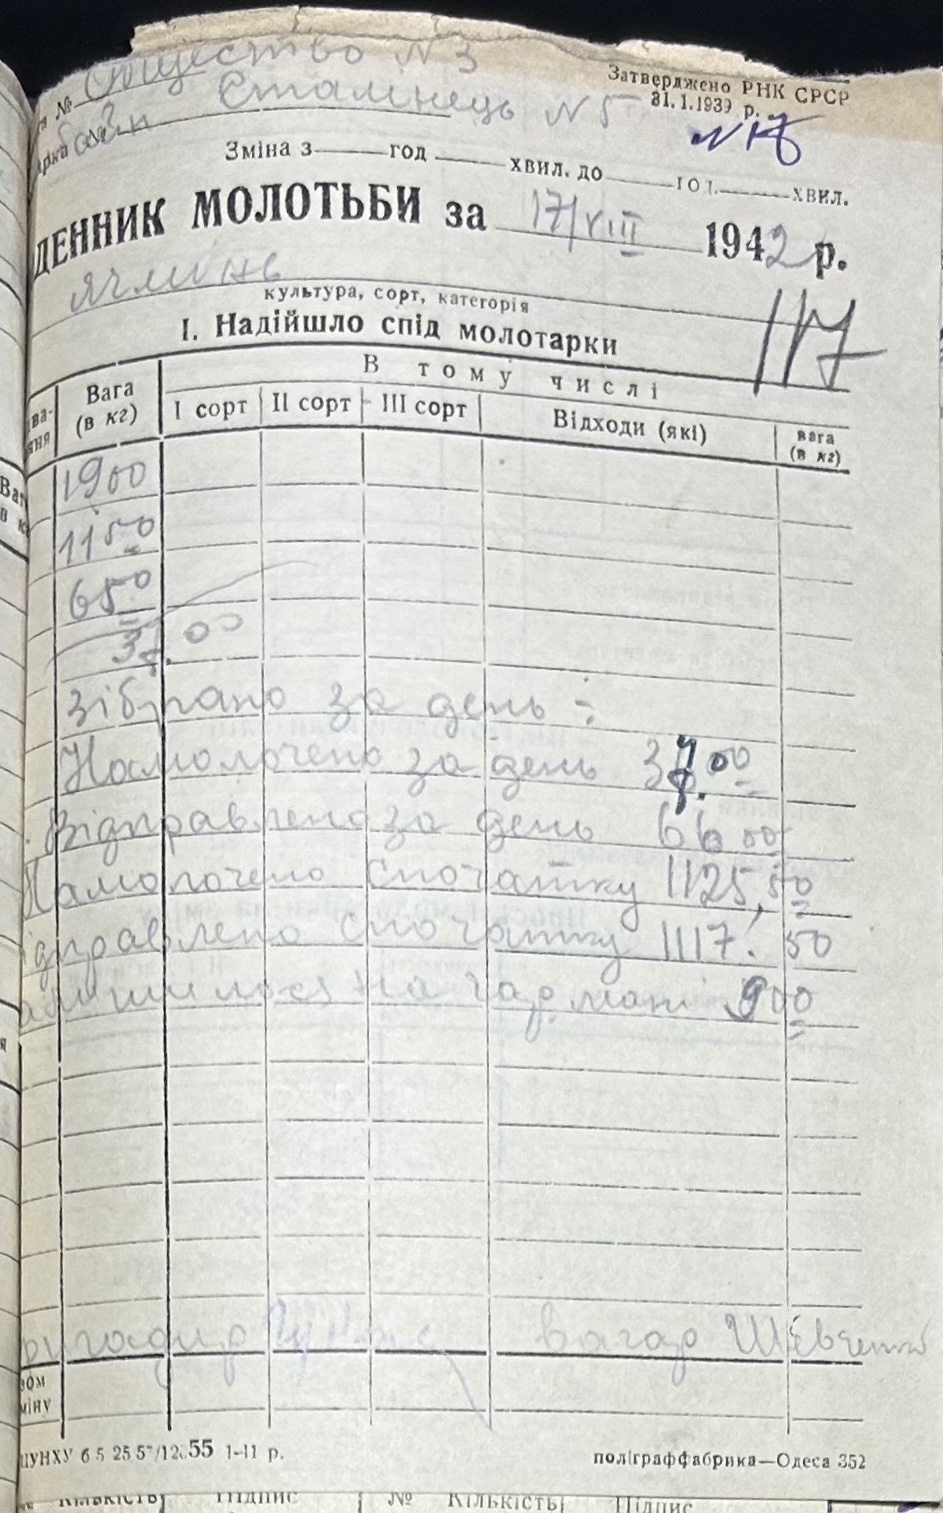 Общество N 3
Затверджено РНК СРСР
31.1.1939 р.
№
Сталінець N 5
N 17
Зміна з год хвил. до год. хвил.
ДЕННИК МОЛОТЬБИ за 17/VIII 1942 р.
ячмінь
культура, сорт, категорія
117
І. Надійшло спід молотарки
Вага (в кг)
В тому числі
І сорт ІІ сорт ІІІ сорт Відходи (які) вага (в кг)
1900
1150
650
37.00
зібрано за день ÷
Намолочено за день 37.00
Відправлено за день 6600
Намолочено спочатку 1125,50
ідправлено спочатку 1117.50
алишилося на гармані 900
ригадир вагар Шевченко
зом
міну
ЦУНХУ 6 5 25 5 55 1-41 р.
поліграффабрика—Одеса 352
КІЛЬКІСТЬ Підпис № КІЛЬКІСТЬ Підпис